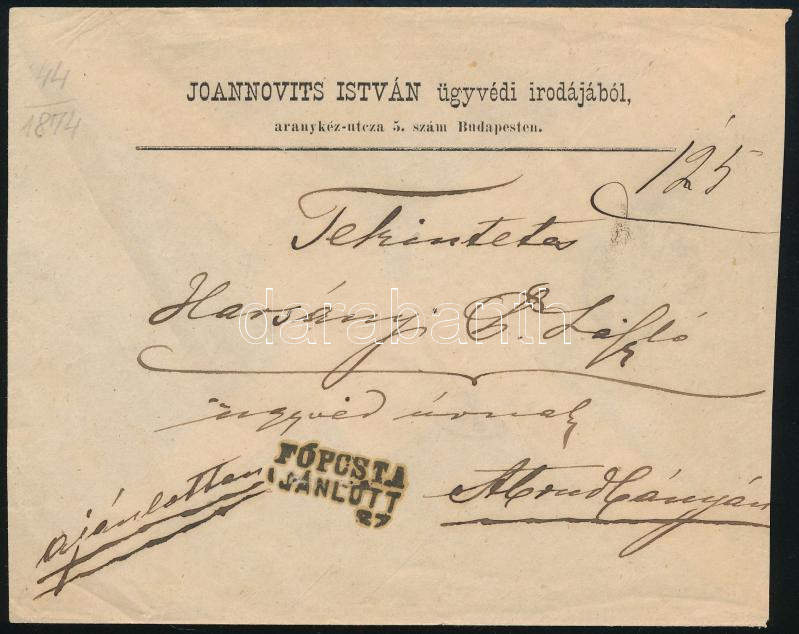 44
1874
JOANNOVITS ISTVÁN ügyvédi irodájából,
aranykéz-utcza 5. szám Budapesten.
125
Tekintetes
Harsányi László
ügyvéd úrnak
FŐPOSTA
AJÁNLOTT
27
ajánlottan
darabanth.com